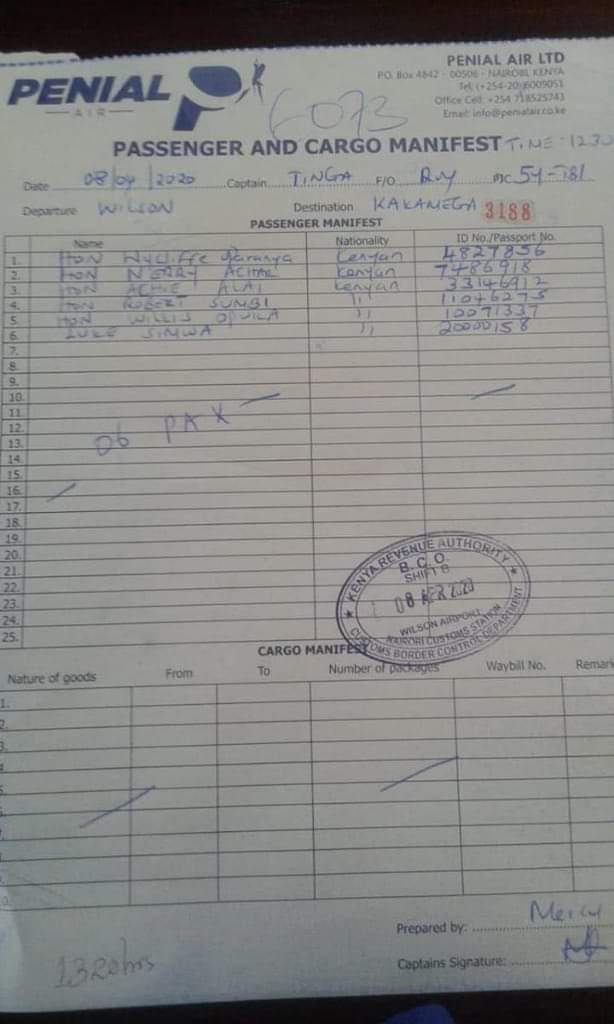 PENIAL
AIR
PENIAL AIR LTD
P.O. Box 4842 - 00506 - NAIROBI, KENYA
Tel: (+254-20)6009051
Office Cell: +254 718525743
Email: info@penialair.co.ke
6073
PASSENGER AND CARGO MANIFEST TIME: 1230
Date 08/04/2020 Captain TINGA F/O Ruy MC 5Y-
Departure WILSON Destination KAKAMEGA 3188
PASSENGER MANIFEST
Name Nationality ID No./Passport No.
1. HON Wycliffe Kenyan 4827856
2. HON Kenyan 7486918
3. HON ALAI Kenyan 33146912
4. HON ROBERT SUMBI ,, 11046275
5. HON WILLIS ,, 10071337
6. LUKE SIMWA ,, 20000158
7.
8.
9.
10.
11.
12.
13.
14.
15.
16.
17.
18.
19.
20.
21.
22.
23.
24.
25.
06 PAX
KENYA REVENUE AUTHORITY
B.C.O.
SHIFT B
08 APR 2020
WILSON AIRPORT
NAIROBI CUSTOMS STATION
CUSTOMS BORDER CONTROL DEPARTMENT
CARGO MANIFEST
Nature of goods From To Number of packages Waybill No. Remark
1.
2.
3.
Prepared by:
Captains Signature:
1320hrs